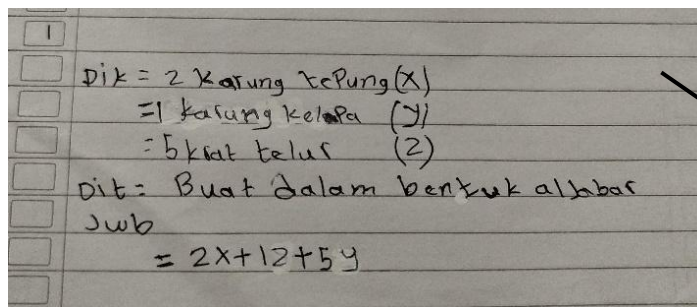 1
Dik = 2 Karung tepung (x)
=1 karung kelapa (y)
= 5 krat telur (2)
Dit = Buat dalam bentuk aljabar
Jwb
= 2x+12+5y